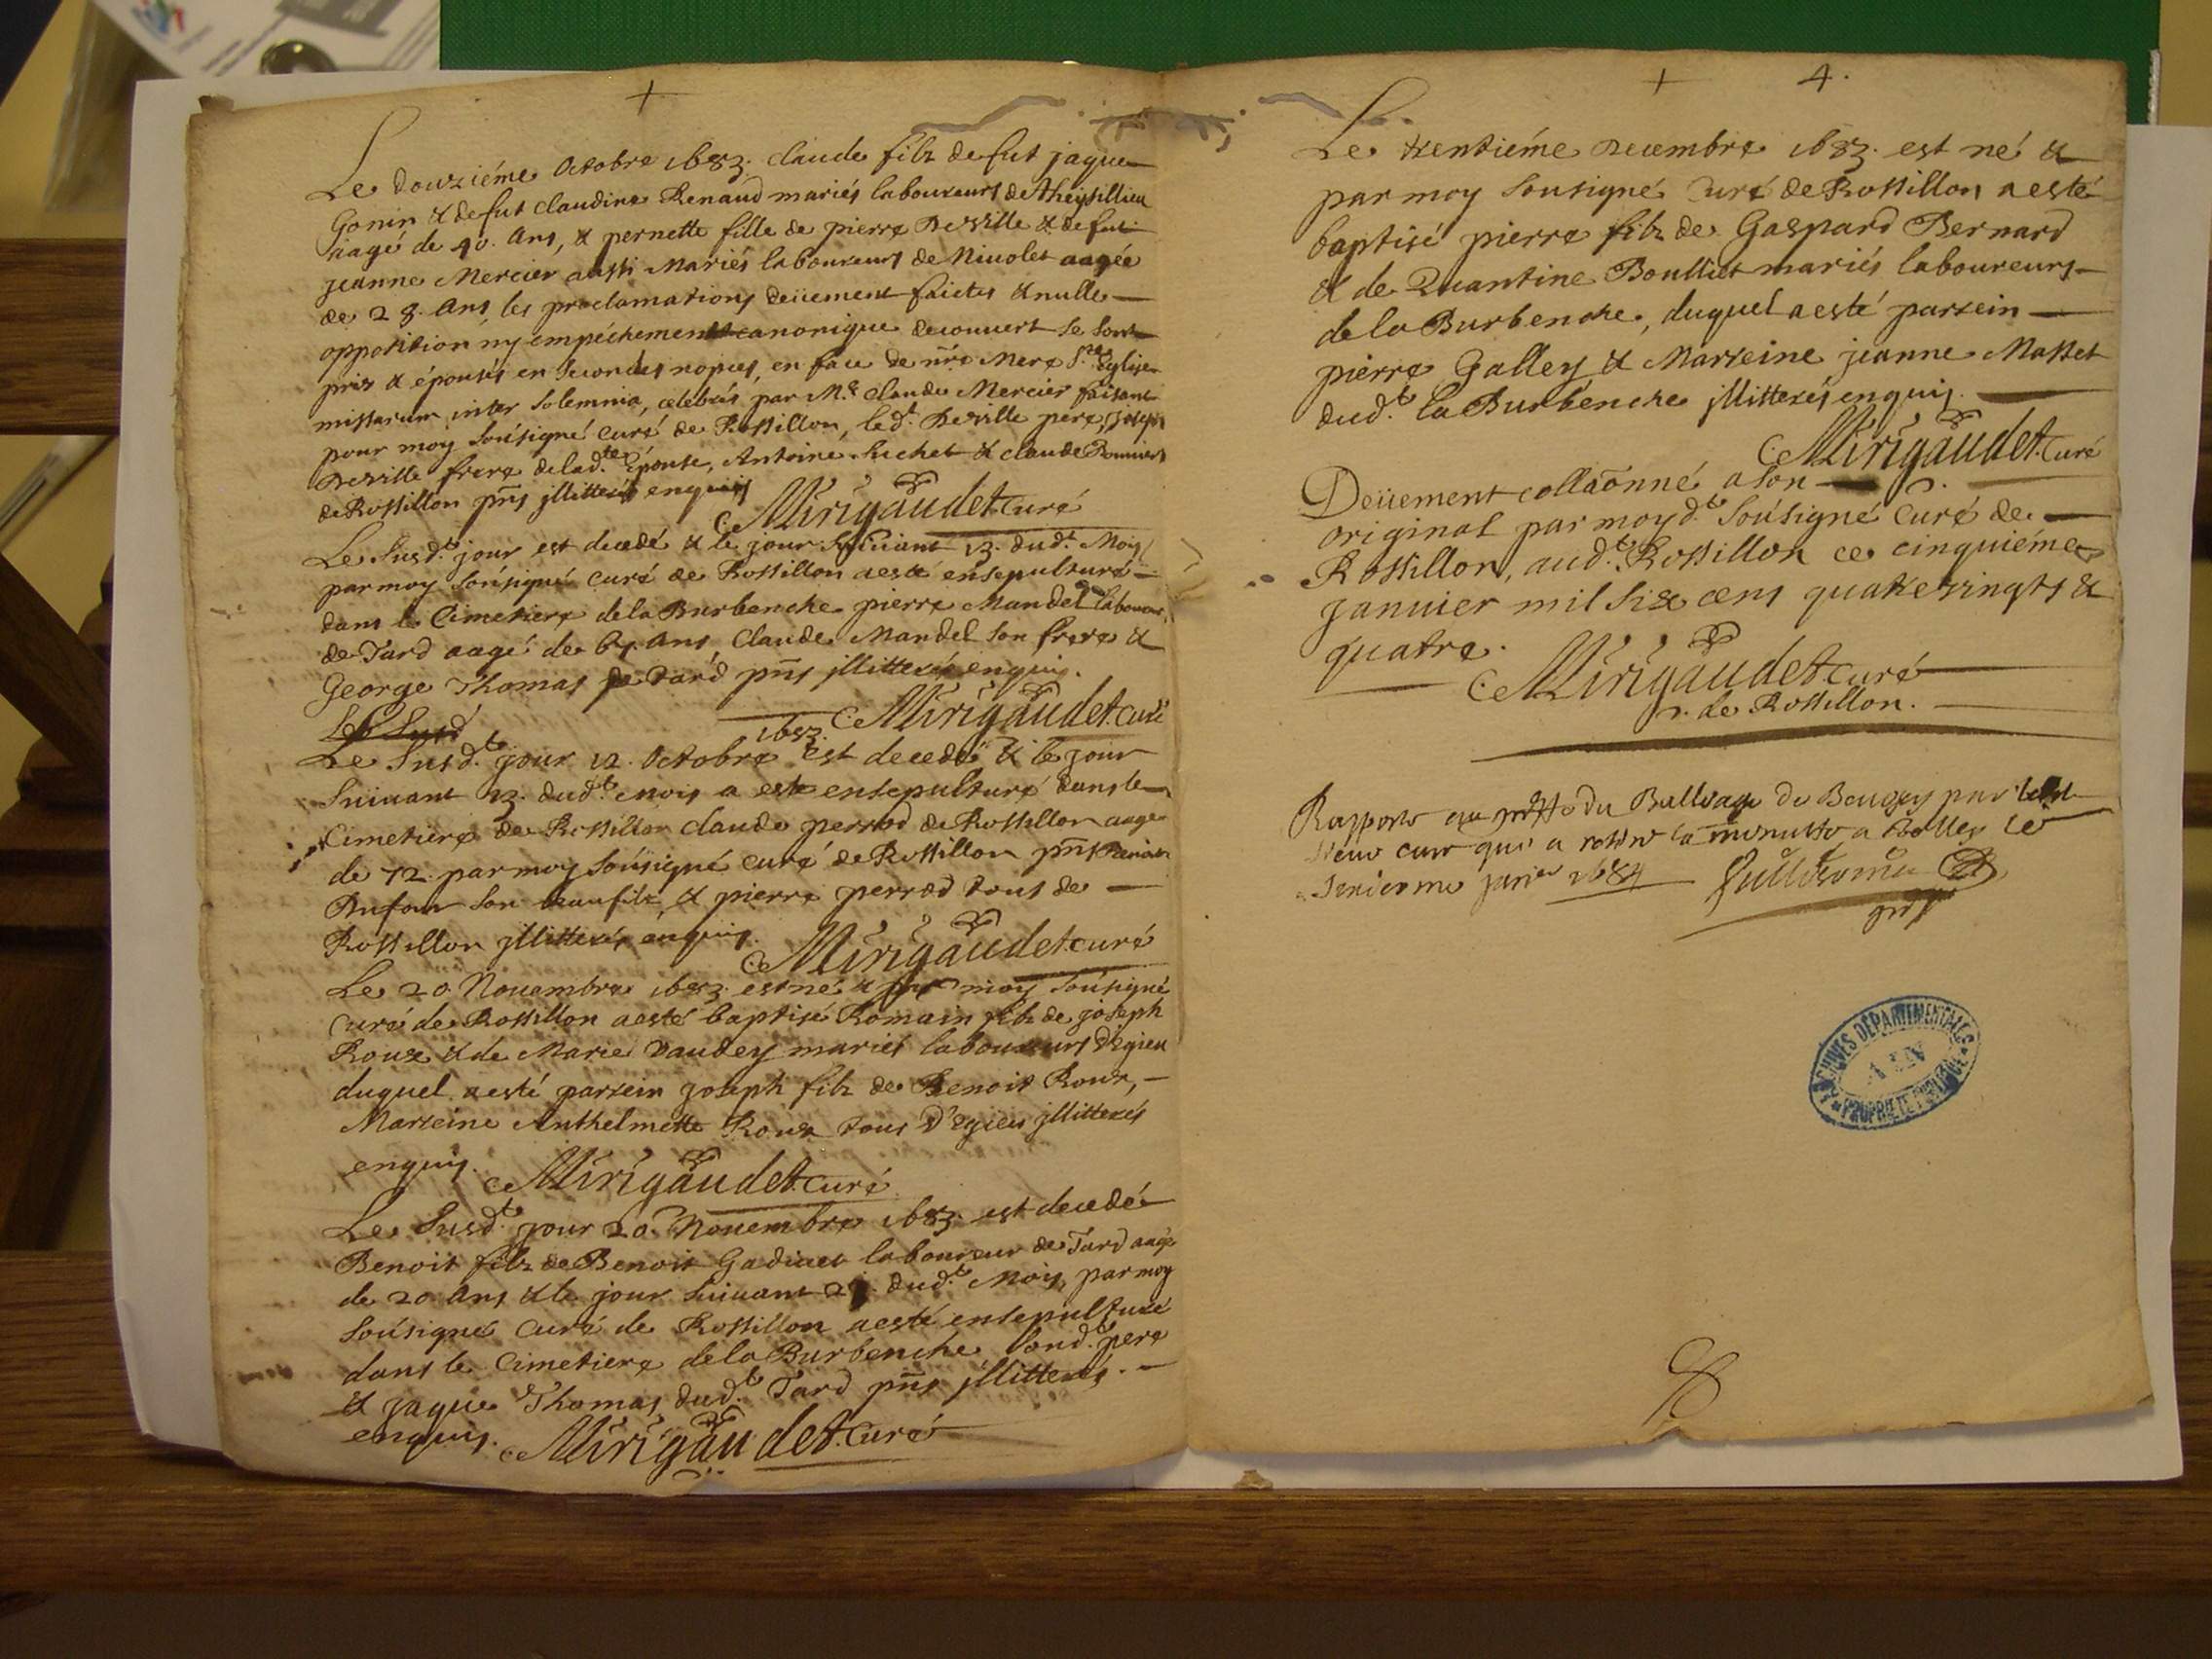 +
Le douziéme Octobre 1683. claude filz de fut jaque
Gonin & de fut claudine Renaud mariés laboureurs de Theysillieu
aagé de 40. ans, & pernette fille de pierre Deville & de fut
jeanne Mercier aussi Mariés laboureurs de Nivolet aagée
de 28. ans, les proclamations deüement faictes & nulle
opposition ny empéchement canonique decouvert se sont
pris & épousés en secondes nopces, en face de nr̃e Mere Ste Eglise
missarum inter solemnia, celebrés par Mr. claude Mercier faisant
pour moy soúsigné curé de Rossillon, led.t Deville pere, Joseph
Deville frere de lad.te épouse, Antoine Suchet & claude
de Rossillon pñs jllitterés enquis
Mirigaudet. Curé
Le Susd.t jour est decedé & le jour suivant 13. dud.t Mois
par moy soúsigné curé de Rossillon a esté ensepulturé
dans le Cimetiere de la Burbenche pierre Mandel laboureur
de Tard aagé de ans, Claude Mandel son frere &
George Thomas de Tard pñs jllitterés enquis.
Mirigaudet. curé
Le Susd
1683.
Le Susd.t jour 12. Octobre est decedé & le jour
suivant 13. dud.t mois a este ensepulturé dans le
Cimetiere de Rossillon claude perrod de Rossillon aage
de 72. par moy soúsigné curé de Rossillon pñs
Dufour son beaufilz, & pierre perrod tous de
Rossillon jllitterés enquis.
Mirigaudet. curé
Le 20. Nouembre 1683. est né & par moy soúsigné
Curé de Rossillon a esté baptisé Romain filz de joseph
Roux & de Marie Daudey mariés laboureurs d'Egieu
duquel a esté parrein joseph filz de Benoit Roux,
Marreine Anthelmette Roux tous D'egieu jllitterés
enquis. Mirigaudet. curé
Le Susd.t jour 20. Nouembre 1683. est decedé
Benoit filz de Benoit Gadiolet laboureur de Tard aagé
de 20. ans & le jour suivant 21. dud.t Mois, par moy
soúsigné Curé de Rossillon a esté ensepulturé
dans le Cimetiere de la Burbenche sond.t pere
& jaque Thomas dud.t Tard pñs jllitterés.
enquis. Mirigaudet. Curé
+ 4.
Le trentiéme Decembre 1683. est né &
par moy soúsigné Curé de Rossillon a esté
baptisé pierre filz de Gaspard Bernard
& de Quantine Boulliet mariés laboureurs
de la Burbenche, duquel a esté parrein
pierre Galley & Marreine jeanne Masset
dud.t la Burbenche jllitterés enquis.
Mirigaudet. Curé
Deüement collaõnné a son
original par moyd.t soúsigné Curé de
Rossillon, aud.t Rossillon ce cinquiéme
januier mil six cens quatrevingts &
quatre.
Mirigaudet. curé
de Rossillon.
Rapporté au greffe du Balliage de Beugey par led.t
sieur curé qui a retiré la minutte a Belley le
janier 1684
ARCHIVES DEPARTEMENTALES
AIN
PROPRIETE PUBLIQUE